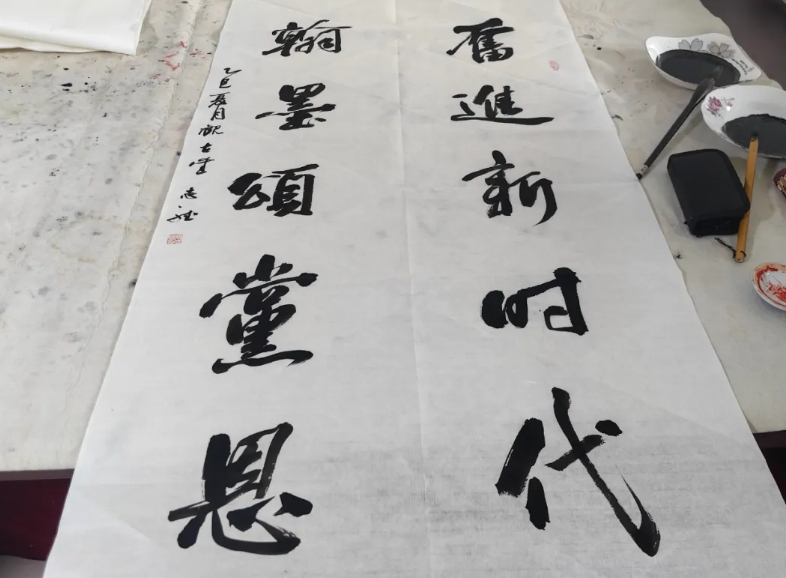 奮進新时代
翰墨頌黨恩
乙巳夏月觀古堂志